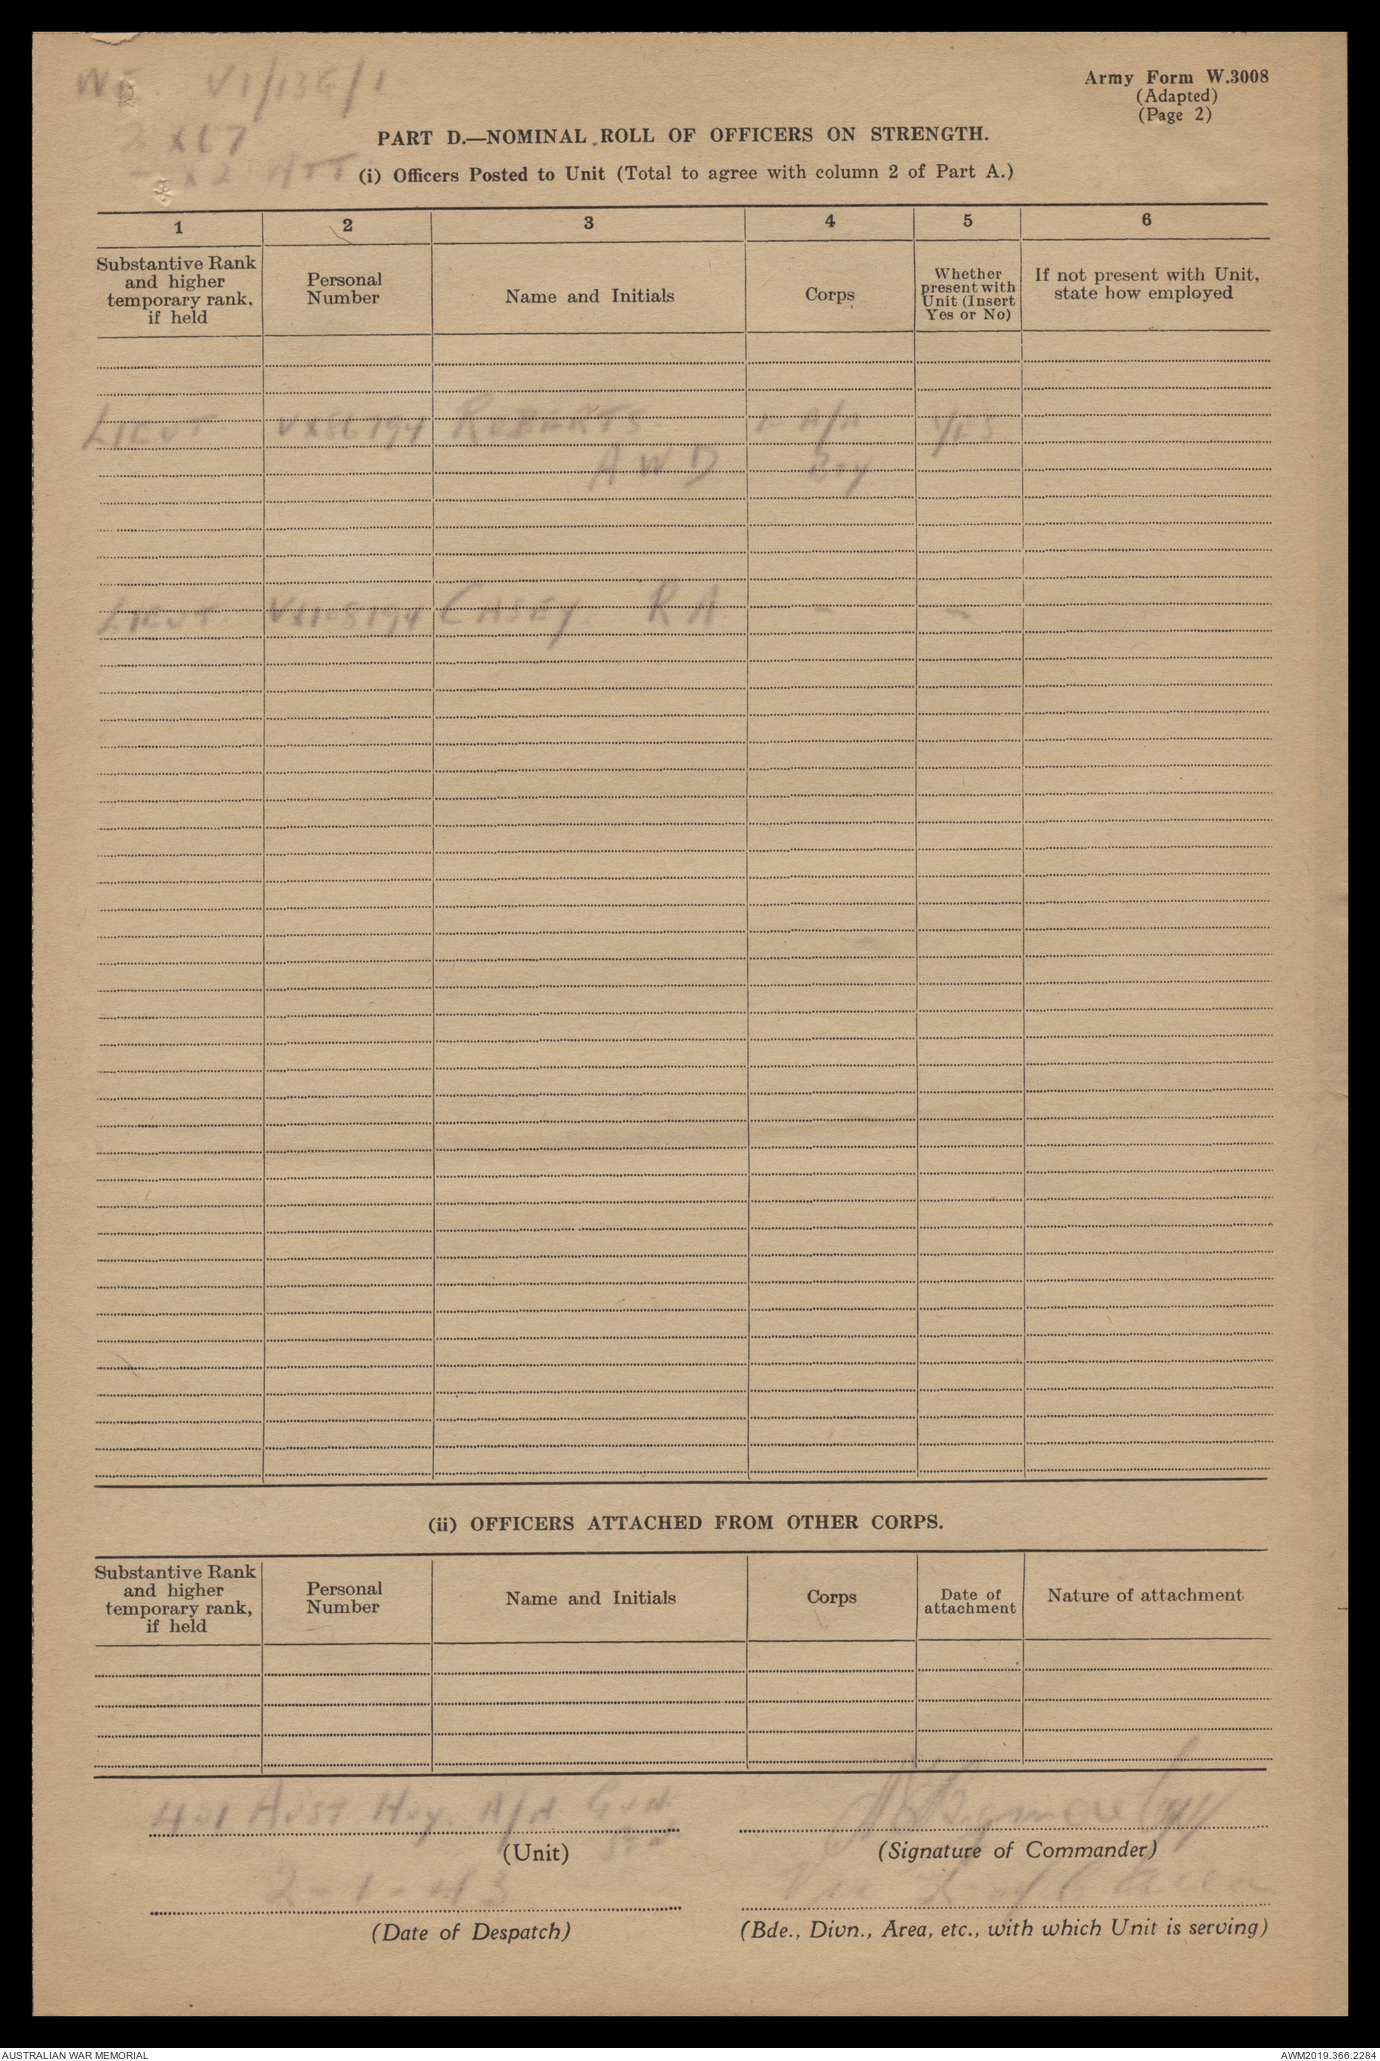 WE V1/13G/1
2 x L7
- x 2 ATT
Army Form W.3008
(Adapted)
(Page 2)
PART D.—NOMINAL ROLL OF OFFICERS ON STRENGTH.
(i) Officers Posted to Unit (Total to agree with column 2 of Part A.)
1 2 3 4 5 6
Substantive Rank and higher temporary rank, if held
Personal Number
Name and Initials
Corps
Whether present with Unit (Insert Yes or No)
If not present with Unit, state how employed
LIEUT VX56794 ROBERTS A/A YES
A W D Bty
LIEUT CASEY R A - -
(ii) OFFICERS ATTACHED FROM OTHER CORPS.
Substantive Rank and higher temporary rank, if held
Personal Number
Name and Initials
Corps
Date of attachment
Nature of attachment
401 AUST Hvy A/A GUN
STN
(Unit)
(Signature of Commander)
2-1-43
Vic L of C Area
(Date of Despatch)
(Bde., Divn., Area, etc., with which Unit is serving)
AUSTRALIAN WAR MEMORIAL
AWM2019.366.2284